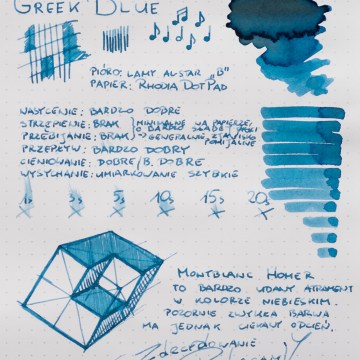 GREEK BLUE
PIÓRO: LAMY ALSTAR „B"
PAPIER: RHODIA DOTPAD
NASYCENIE: BARDZO DOBRE
STRZĘPIENIE: BRAK } MINIMALNE NA PAPIERZE
O BARDZO SŁABEJ JAKOŚCI
PRZEBIJANIE: BRAK GENERALNIE ZJAWISKO
POMIJALNE
PRZEPŁYW: BARDZO DOBRY
CIENIOWANIE: DOBRE / B. DOBRE
WYSYCHANIE: UMIARKOWANIE SZYBKIE
1s 3s 5s 10s 15s 20s
MONTBLANC HOMER
TO BARDZO UDANY ATRAMENT
W KOLORZE NIEBIESKIM.
POZORNIE ZWYKŁA BARWA
MA JEDNAK CIEKAWY ODCIEŃ.
Zdecydowanie